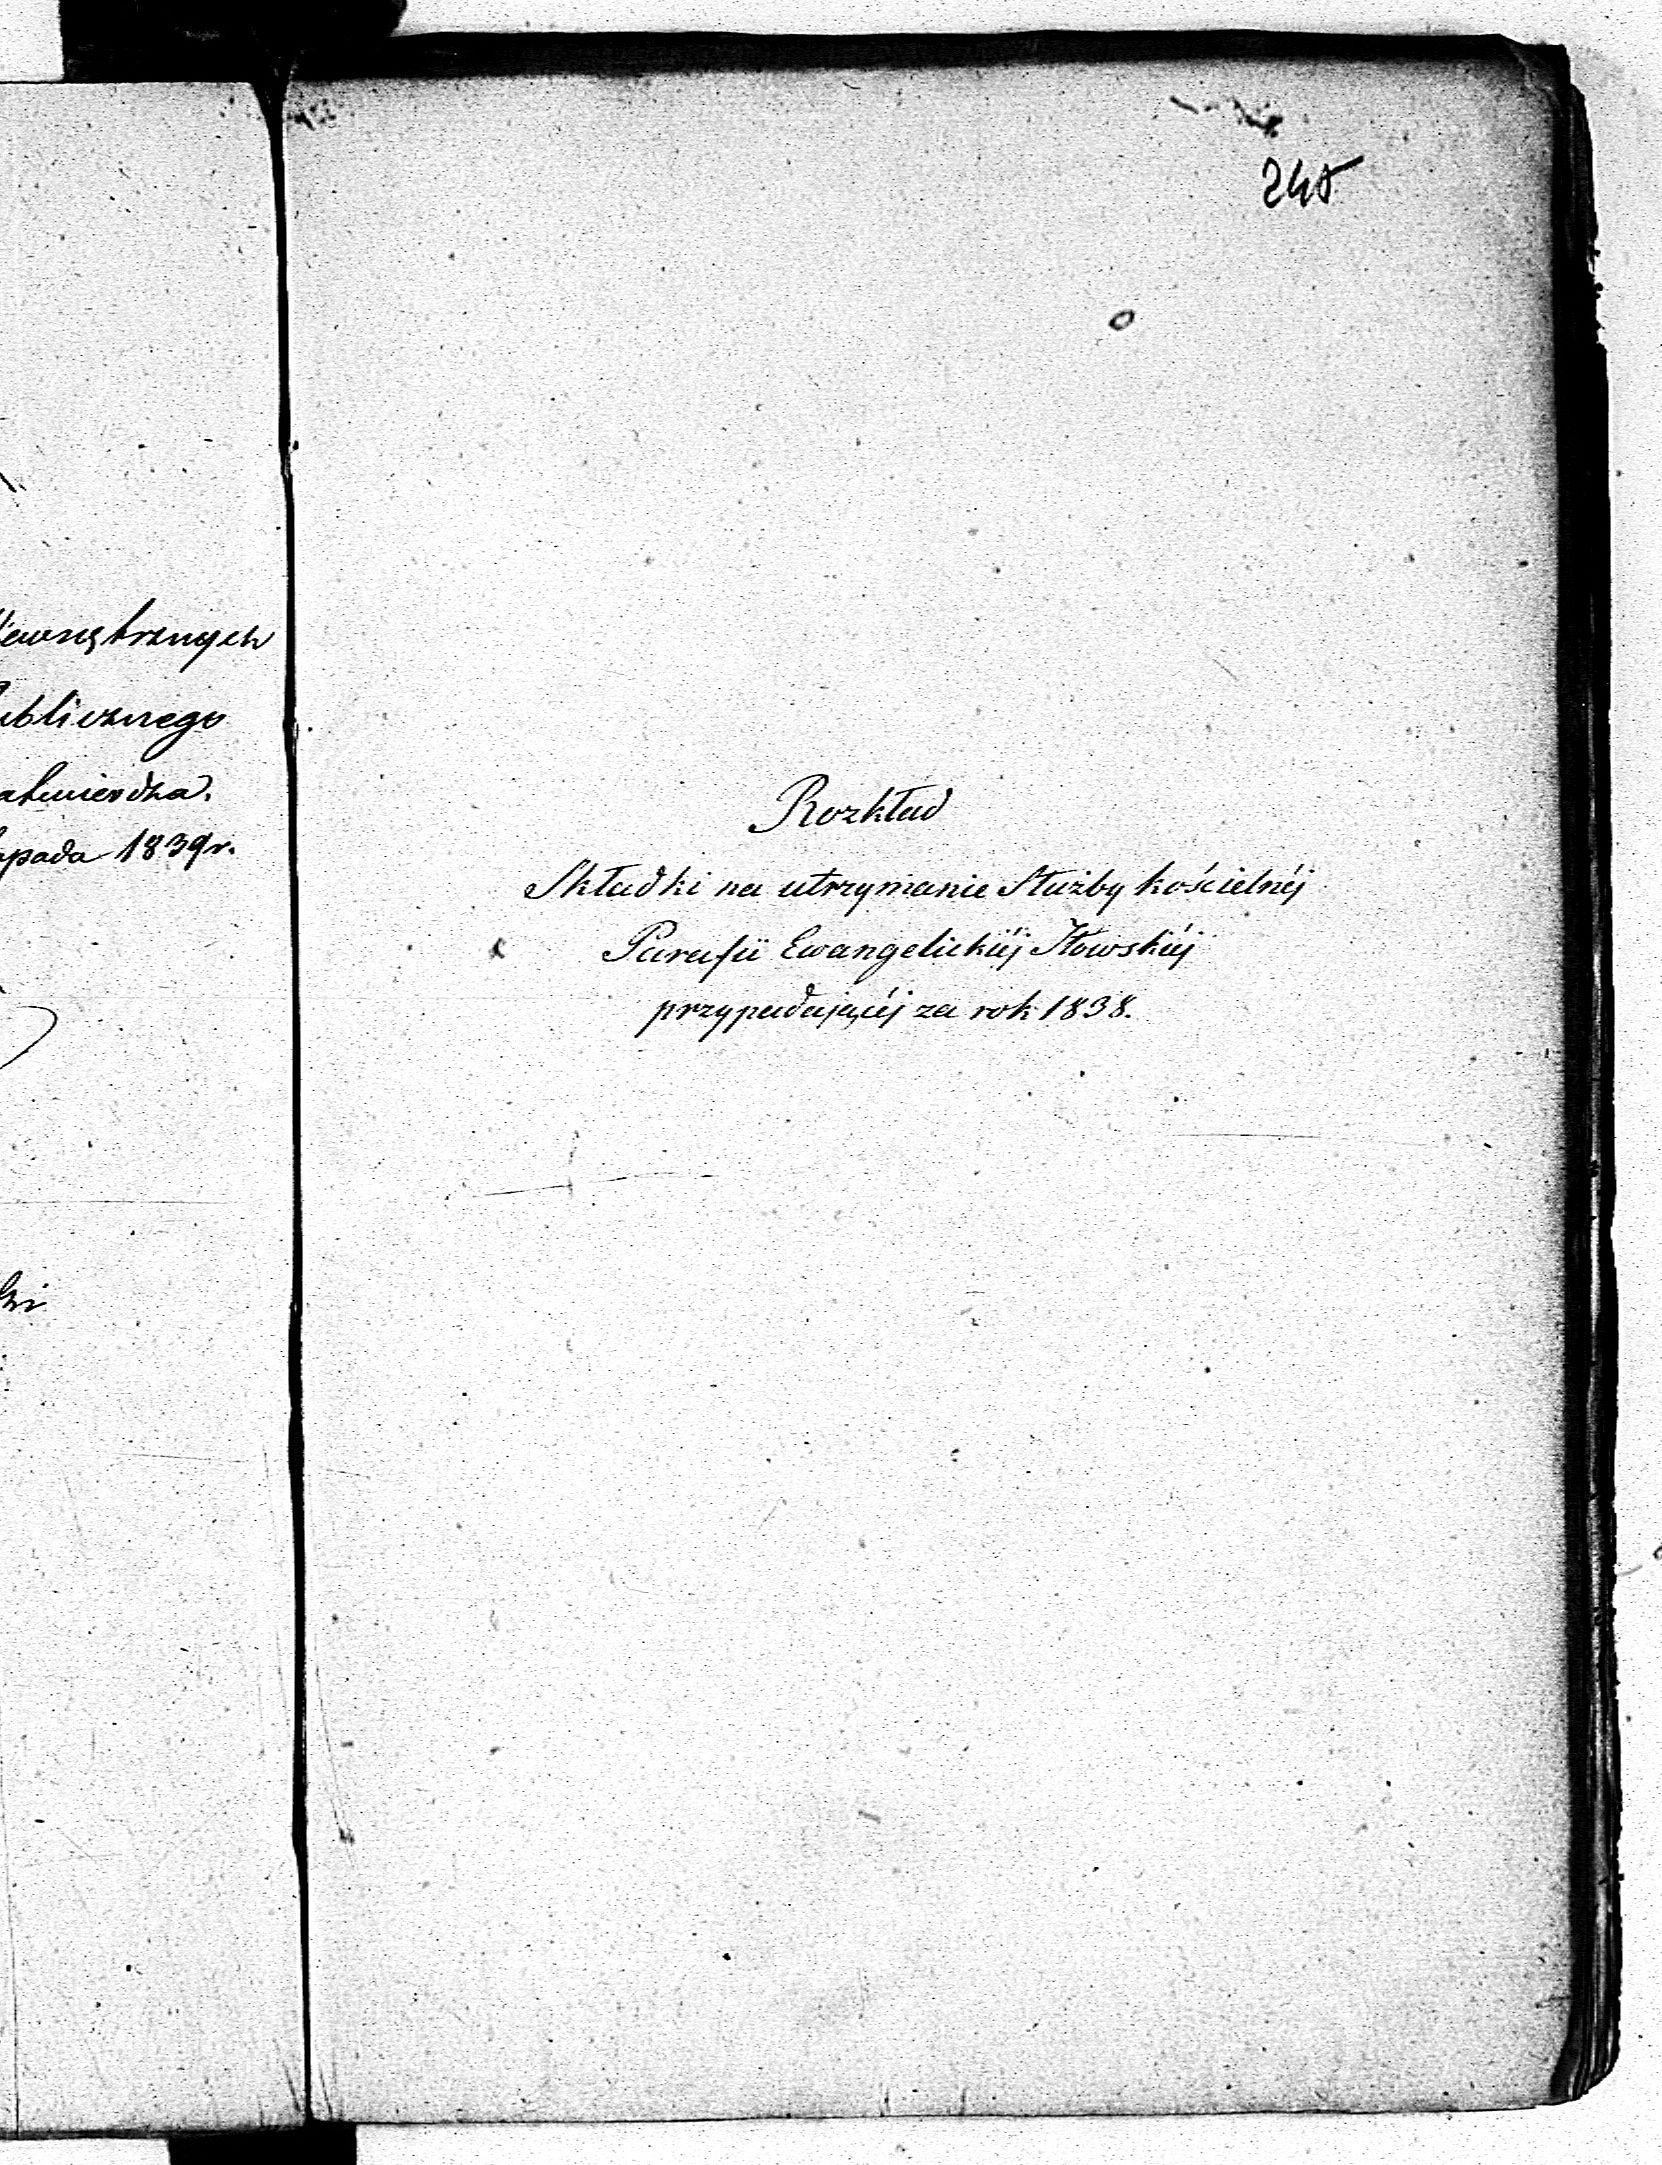 Wewnętrznych
ublicznego
atwierdza.
opada 1839r.
ki
245
Rozkład
Składki na utrzymanie Służby kościelnéj
Parafii Ewangelickiéj Iłowskiéj
przypadającéj za rok 1838.